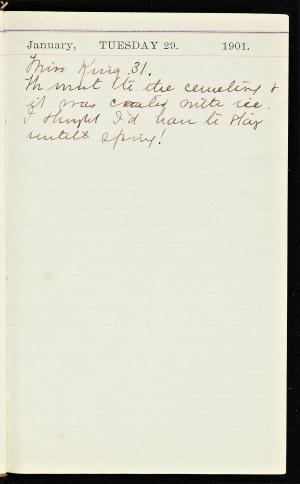 January, TUESDAY 29. 1901.
Miss King 31.
went to the cemetery &
it was coated with ice.
I thought I'd have to stay
untill spring!